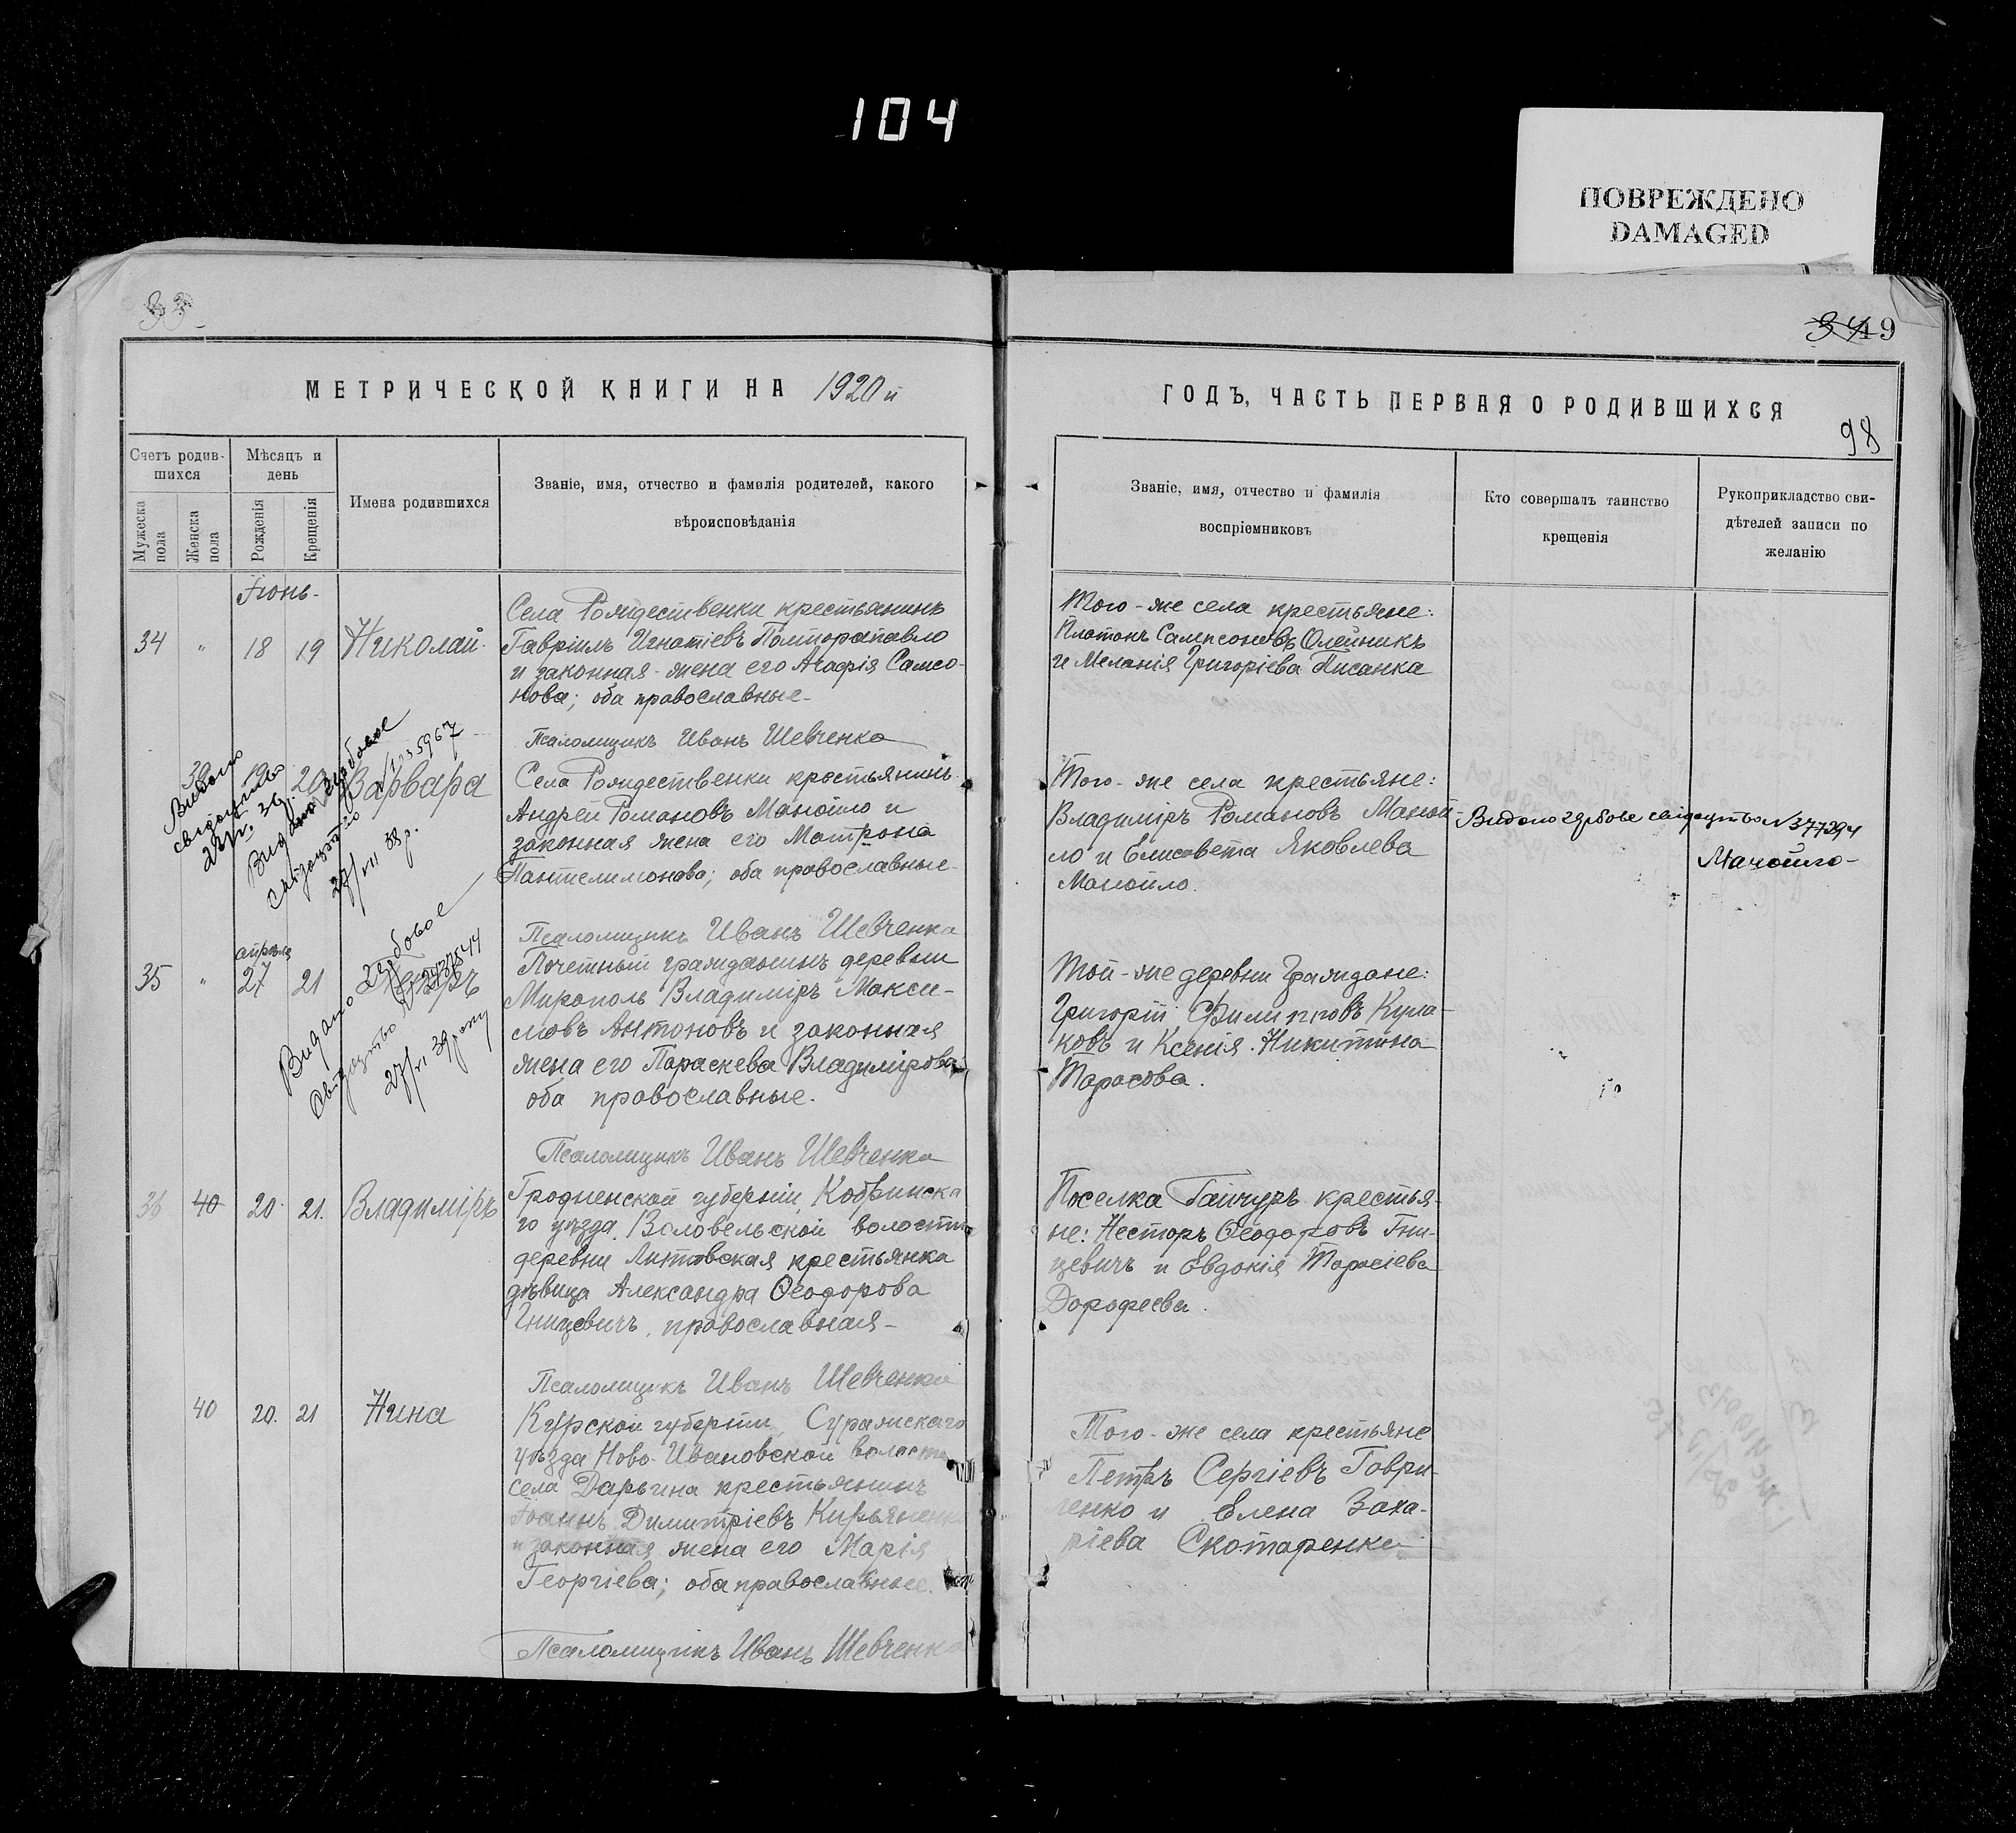 104
ПОВРЕЖДЕНО
DAMAGED
33
34
49
98
МЕТРИЧЕСКОЙ КНИГИ НА 1920 й
ГОДЪ, ЧАСТЬ ПЕРВАЯ О РОДИВШИХСЯ
Счетъ родив-
шихся
Мужеска
пола
Женска
пола
Мѣсяцъ и
день
Рожденія
Крещенія
Имена родившихся
Званіе, имя, отчество и фамилія родителей, какого
вѣроисповѣданія
Званіе, имя, отчество и фамилія
воспріемниковъ
Кто совершалъ таинство
крещенія
Рукоприкладство сви-
дѣтелей записи по
желанію
Іюнь-
34 " 18 19 Николай
Села Рождественки крестьянинъ
Гавріилъ Игнатіевъ Полторапавло
и законная жена его Агафія Самсо-
нова; оба православные-
Псаломщикъ Иванъ Шевченко
Того-же села крестьяне:
Платонъ Сампсоновъ Олейникъ
и Меланія Григоріева Писанка
39 19 20 Варвара
Села Рождественки крестьянинъ
Андрей Романовъ Манойло и
законная жена его Матрона
Пантелимонова; оба православные-
Псаломщикъ Иванъ Шевченко
Того-же села крестьяне:
Владиміръ Романовъ Маной-
ло и Елисавета Яковлева
Манойло.
Видано гербове свідоцтво N 377294
Манойло-
Видано
свідоцтво
Видано гербовое
свідоцтво
27/VII 38 р.
апрѣль
35 " 27 21
Почетный гражданинъ деревни
Мирополь Владиміръ Макси-
мовъ Антоновъ и законная
жена его Параскева Владимірова
оба православные.
Псаломщикъ Иванъ Шевченко
Той-же деревни Граждане:
Григорій Филипповъ Кула-
ковъ и Ксенія Никитина
Тарасова.
Видано гербовое
свідоцтво
27/VI 39 року
36 40 20. 21. Владиміръ
Гродненской губерніи, Кобринска
го уѣзда Воловельской волости
деревни Литовская крестьянка
дѣвица Александра Ѳеодорова
Гницевичъ, православная-
Псаломщикъ Иванъ Шевченко
Поселка Гайчуръ крестья-
не: Несторъ Ѳеодоровъ Гни-
цевичъ и Евдокія Тарасіева
Дорофеева.
40 20. 21 Нина
Курской губерніи, Суражскаго
уѣзда Ново-Ивановской волости
села Дарьина крестьянинъ
Іоаннъ Димитріевъ Кирьяненко
и законная жена его Марія
Георгіева; оба православные.
Псаломщикъ Иванъ Шевченко
Того-же села крестьяне
Петръ Сергіевъ Гаври-
ленко и Елена Заха-
ріева Скотаренко